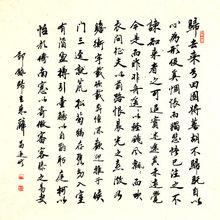 歸去來兮田園將蕪胡不歸既自以
心為形役奚惆悵而獨悲悟已往之不
諫知來者之可追實迷途其未遠覺
今是而昨非舟遙遙以輕颺風飄飄而吹
衣問征夫以前路恨晨光之熹微乃
瞻衡宇載欣載奔僮僕歡迎稚子候
門三逕就荒松菊猶存攜幼入室
有酒盈樽引壺觴以自酌眄庭柯以
怡顏倚南窗以寄傲審容膝之易安
節錄歸去來辭